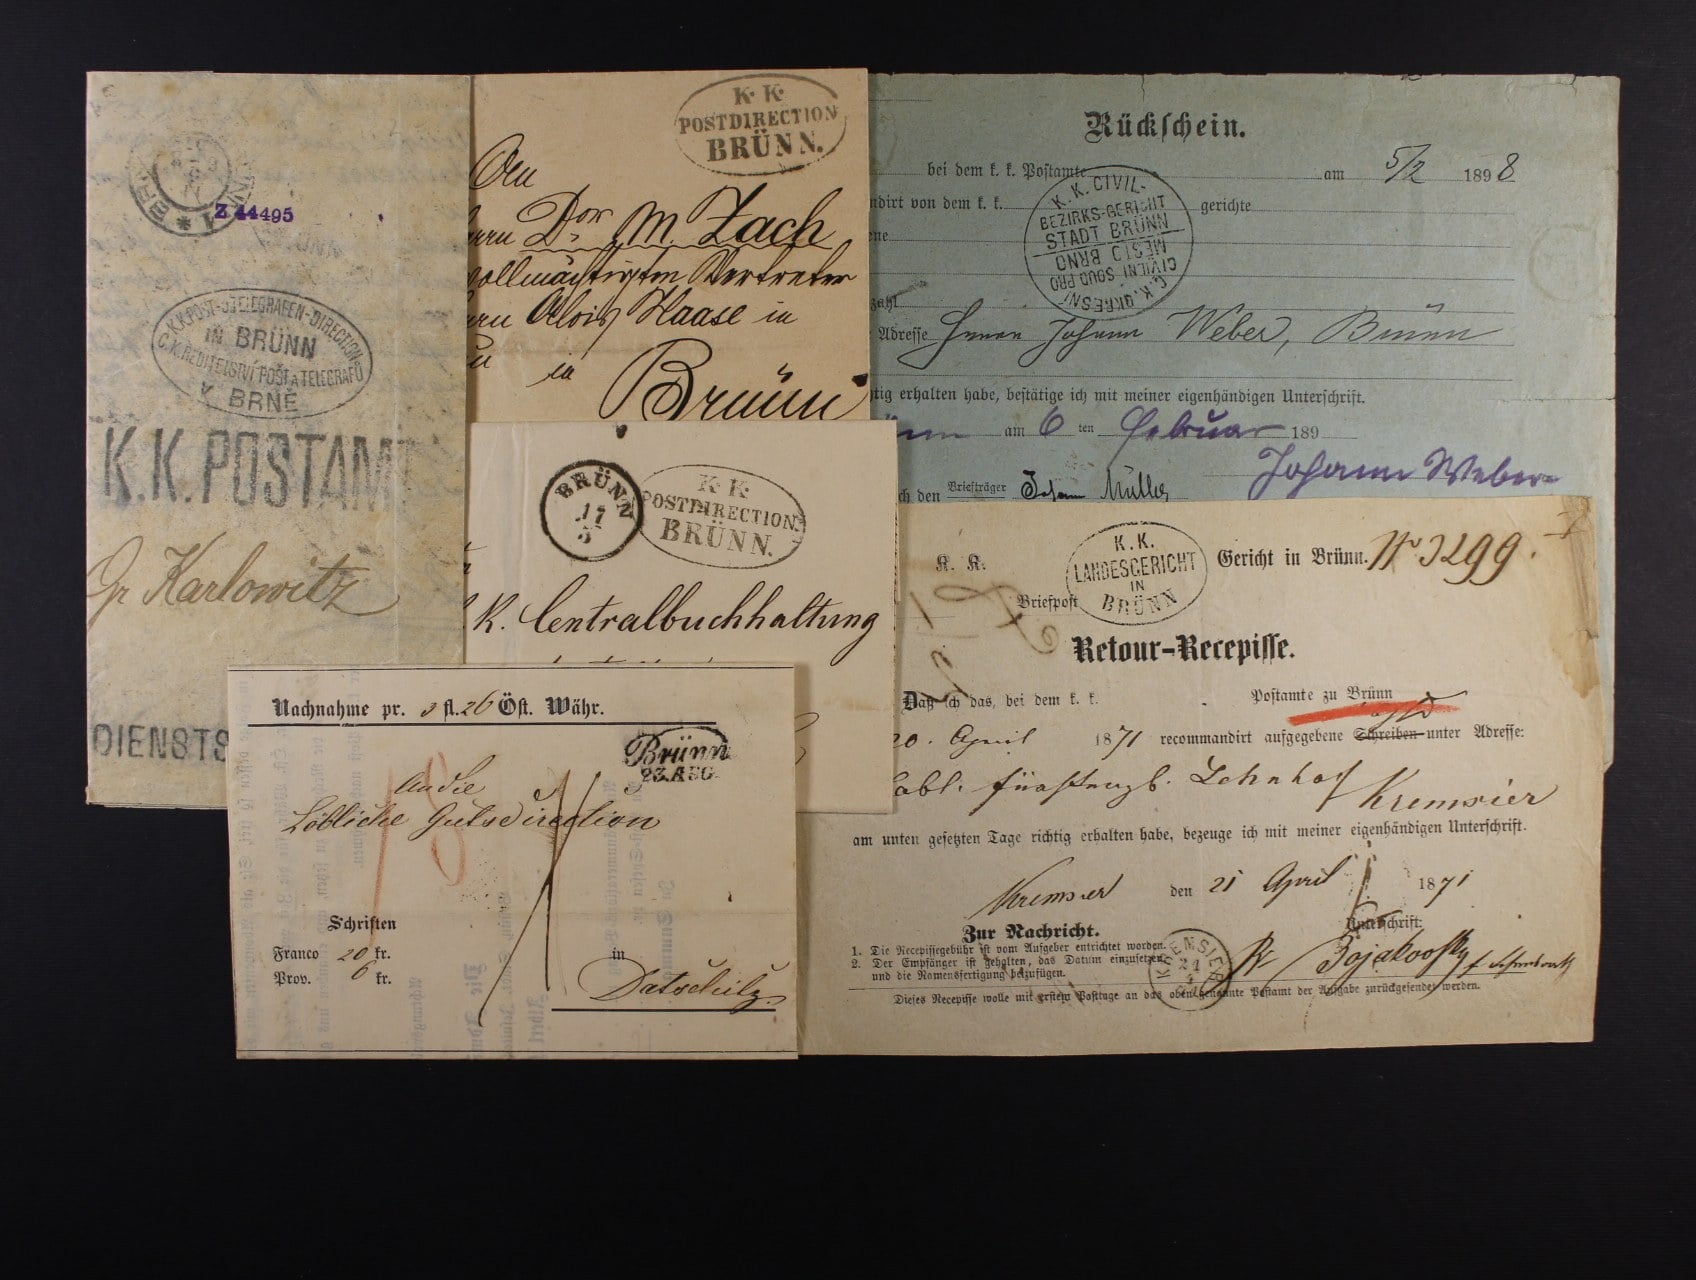 Z 44495
K.K. POST- U. TELEGRAFEN-DIRECTION
IN BRÜNN
C.K. ŘEDITELSTVÍ POŠT A TELEGRAFŮ
V BRNĚ
K.K. POSTAMT
Gr Karlowitz
DIENSTS
K. K.
POSTDIRECTION
BRÜNN.
An
Dor M. Zach
vollmächtigten Vertreter
Alois Haase in
in
Brünn
BRÜNN
17
5
K. K.
POSTDIRECTION
BRÜNN.
K. Centralbuchhaltung
Nachnahme pr. 3 fl. 26 Öst. Währ.
Brünn
23. AUG.
An die
Löbliche Gutsdirection
Schriften
Franco 20 kr.
Prov. 6 kr.
in
Datschitz
Rückschein.
bei dem k. k. Postamte am 5/2 1898
dirt von dem k. k. gerichte
K. K. CIVIL-
BEZIRKS-GERICHT
STADT BRÜNN
MĚSTO BRNO
CIVILNÍ SOUD PRO
C. K. OKRESNÍ
zahl
Adresse Herrn Johann Weber, Brünn
tig erhalten habe, bestätige ich mit meiner eigenhändigen Unterschrift.
am 6 ten Februar 189
Johann Weber
ch den Briefträger Johann Müller
K. K. Gericht in Brünn. No 3299.
K. K.
LANDESGERICHT
IN
BRÜNN
Briefpost
Retour-Recepisse.
Daß ich das, bei dem k. k. Postamte zu Brünn
20. April 1871 recommandirt aufgegebene Schreiben unter Adresse:
Lehnhof Kremsier
am unten gesetzten Tage richtig erhalten habe, bezeuge ich mit meiner eigenhändigen Unterschrift.
Kremsier den 21 April 1871
Zur Nachricht. Unterschrift:
1. Die Recepissegebühr ist vom Aufgeber entrichtet worden.
2. Der Empfänger ist gehalten, das Datum einzusetzen
und die Namensfertigung beizufügen.
KREMSIER
21
4
Dieses Recepisse wolle mit erstem Posttage an das oben genannte Postamt der Aufgabe zurückgesendet werden.